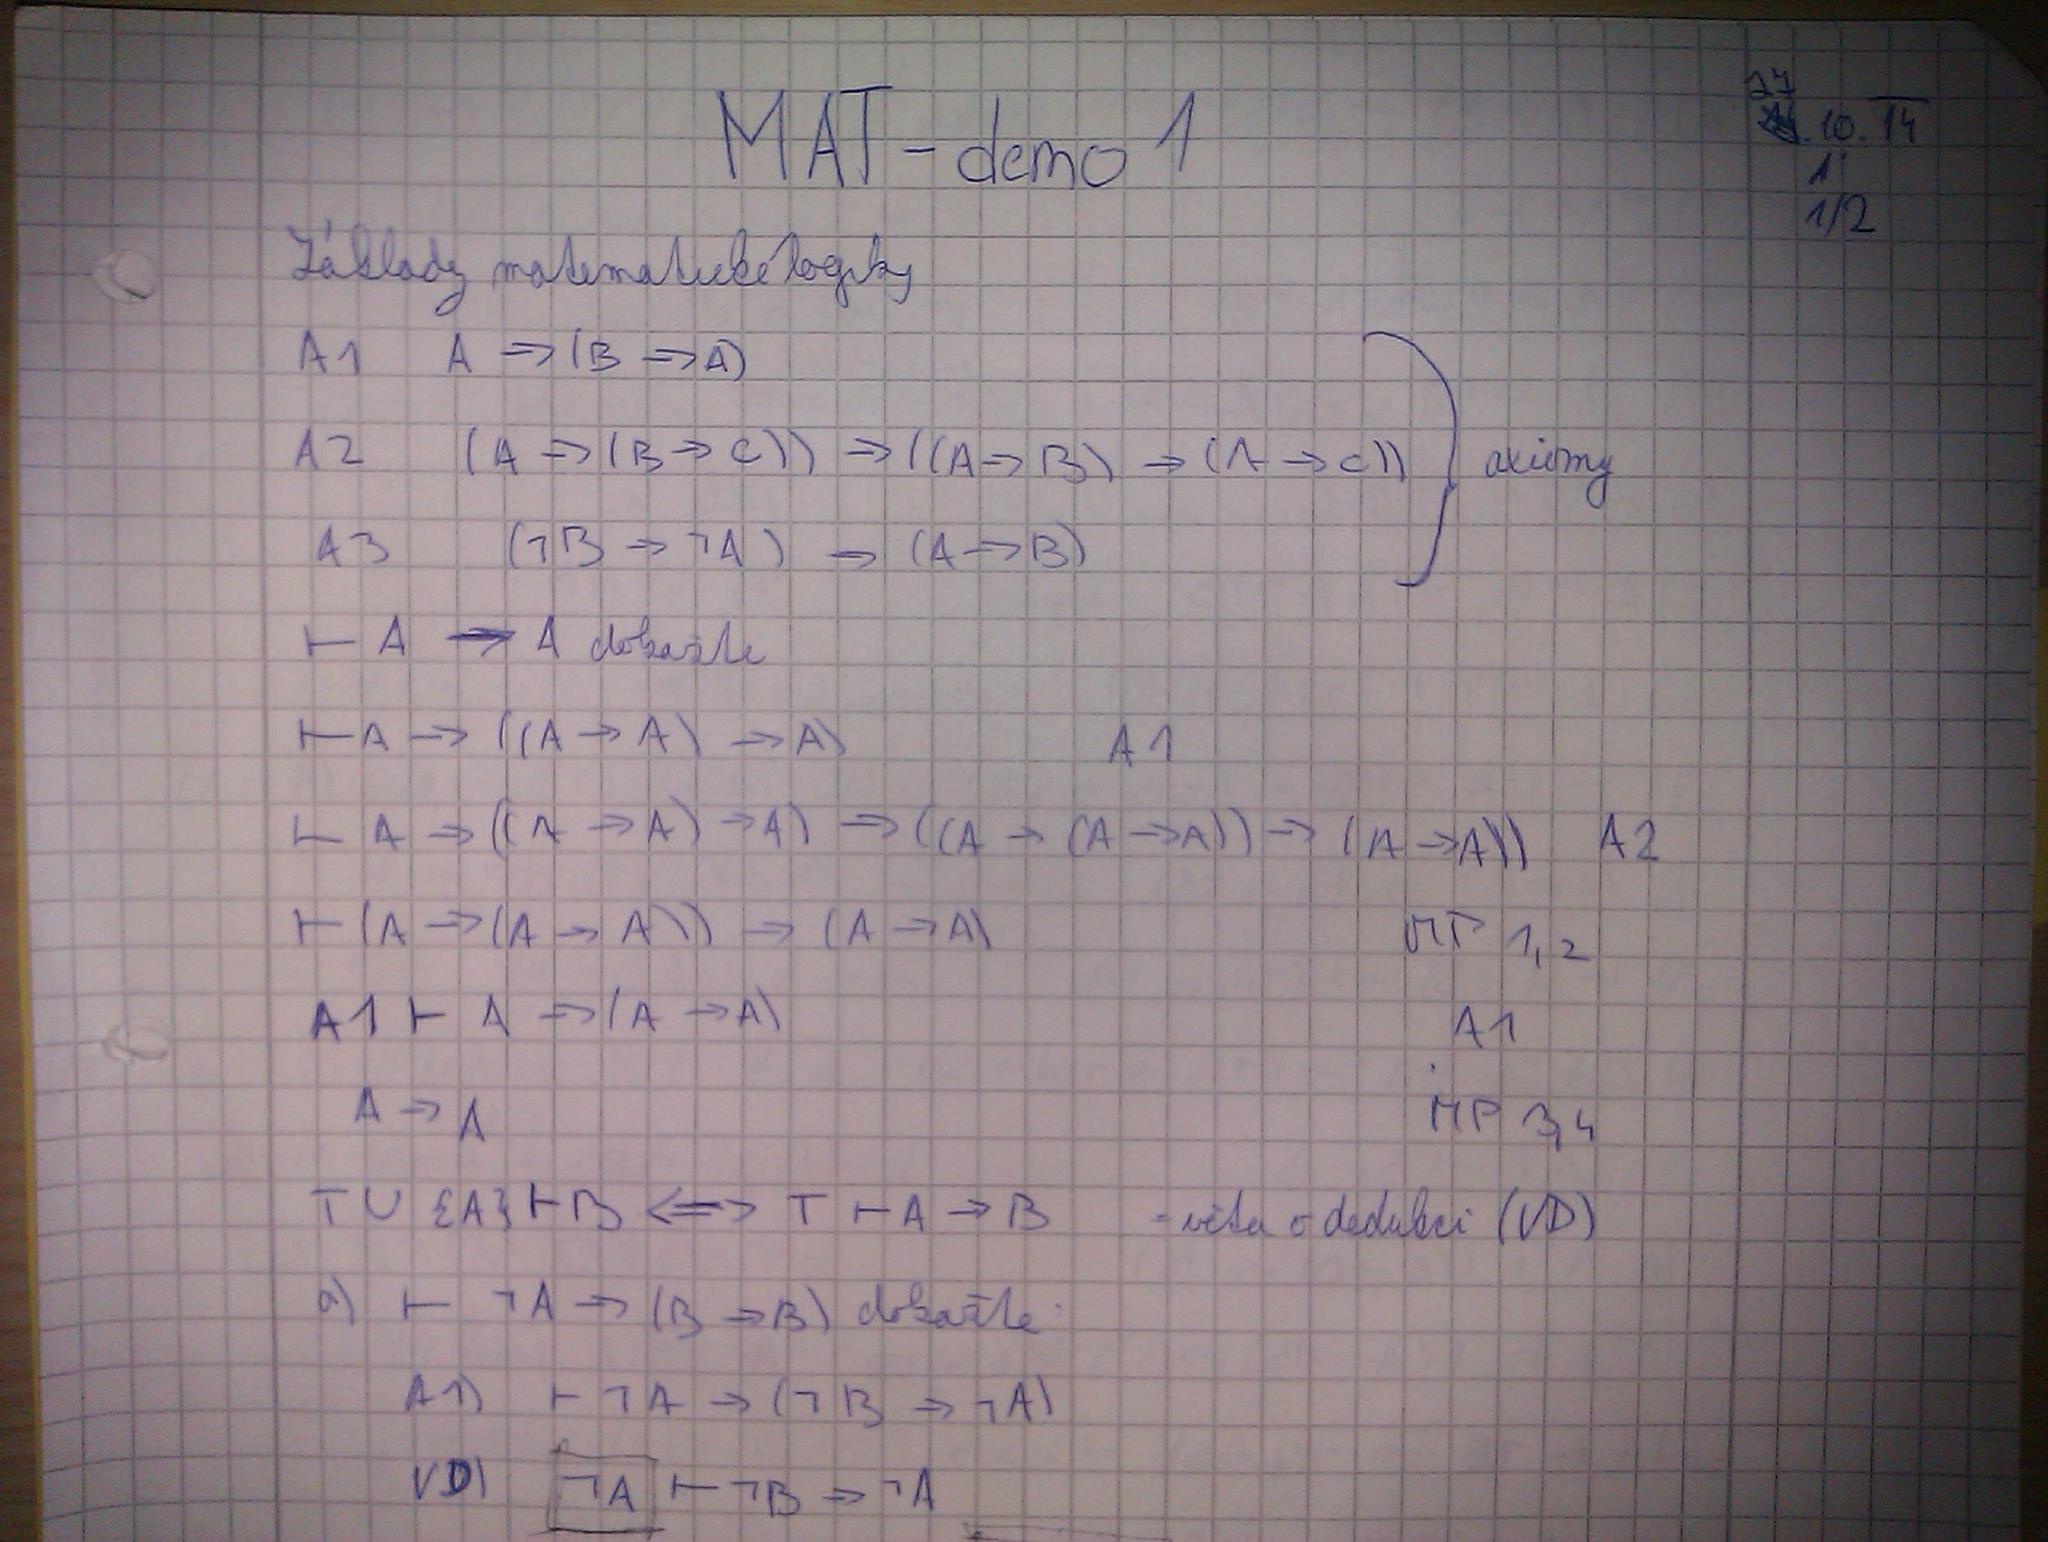 MAT - demo 1
27
. 10. 14
1
1/2
Základy matematické logiky
A1 A → (B → A)
A2 (A → (B → C)) → ((A → B) → (A → C))
axiomy
A3 (¬B → ¬A) → (A → B)
⊢ A → A dokažte
⊢ A → ((A → A) → A) A1
⊢ A → ((A → A) → A) → ((A → (A → A)) → (A → A)) A2
⊢ (A → (A → A)) → (A → A) MP 1,2
A1 ⊢ A → (A → A) A1
A → A MP 3,4
T ∪ {A} ⊢ B <=> T ⊢ A → B - věta o dedukci (VD)
a) ⊢ ¬A → (B → B) dokažte:
A1) ⊢ ¬A → (¬B → ¬A)
VD) ¬A ⊢ ¬B → ¬A